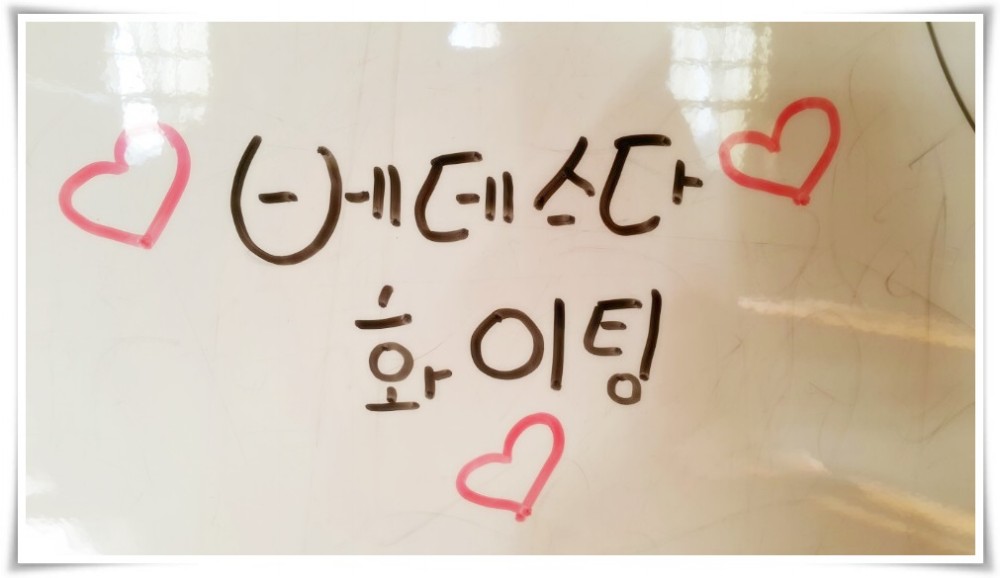 베데스다
화이팅